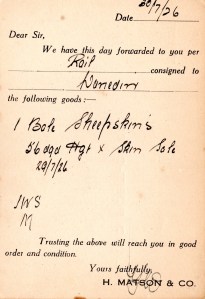 Date 30/7/26
Dear Sir,
We have this day forwarded to you per
Rail consigned to
Dunedin
the following goods:—
1 Bale Sheepskins
56 dgd Hgt x Skin Sale
29/7/26
JWS
M
Trusting the above will reach you in good
order and condition.
Yours faithfully,
H. MATSON & CO.